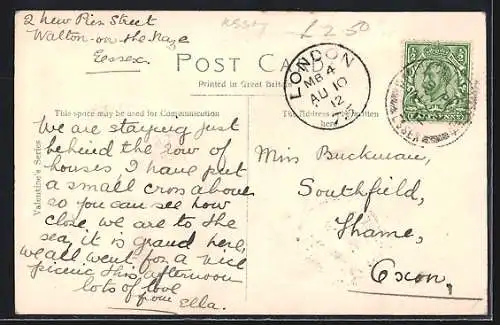 2 New Pier Street
Walton-on-the-Naze
Essex.
£2.50
POST CARD
Printed in Great Britain
This space may be used for Communication
The Address to be written
here
Valentine's Series
LONDON
M84
AU 10
12
75
We are staying just
behind the row of
houses I have put
a small cross above
so you can see how
close we are to the
sea, it is grand here,
we all went for a nice
picnic this afternoon
lots of love
from Ella.
Miss Buckman,
Southfield,
Thame,
Oxon,